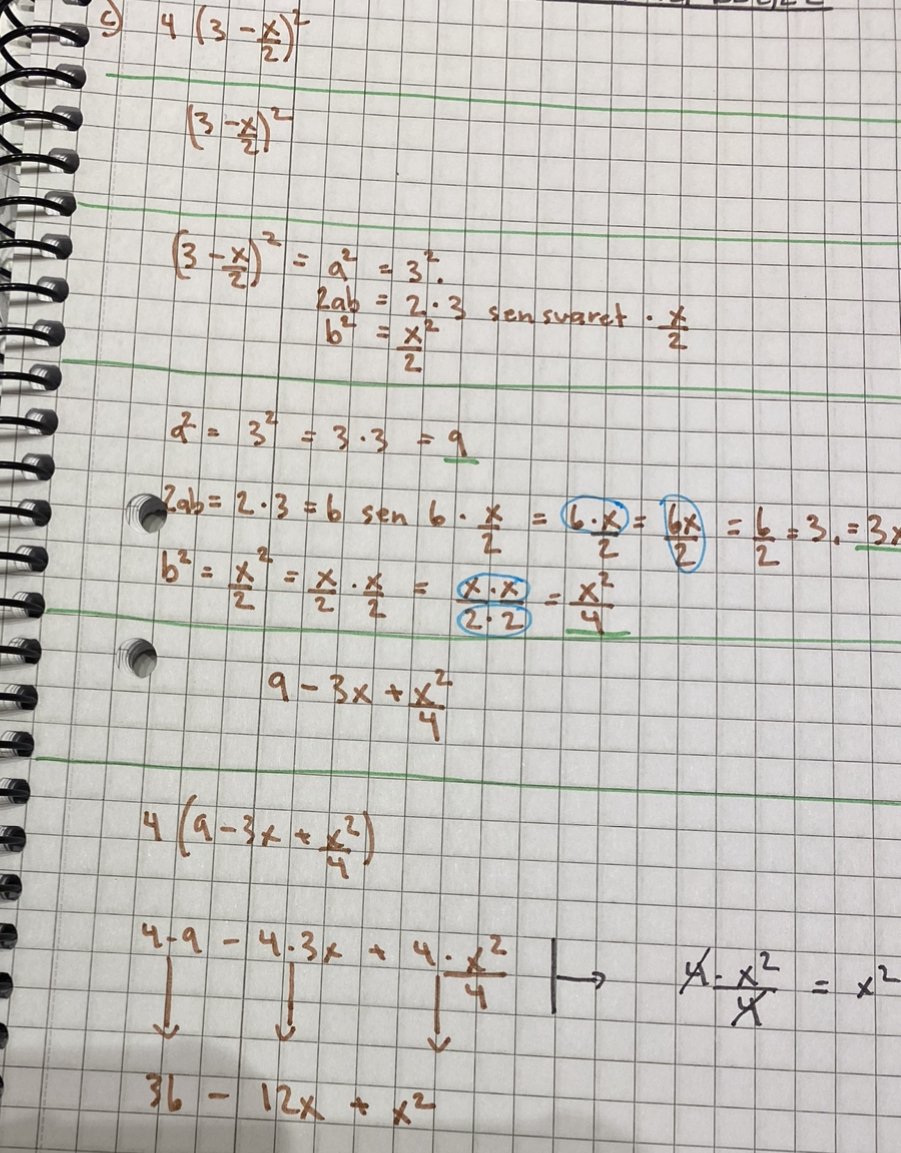 c) 4 (3 - x/2)²
(3 - x/2)²
(3 - x/2)² = a² = 3².
2ab = 2 · 3 sen svaret · x/2
b² = x²/2
a² = 3² = 3 · 3 = 9
2ab = 2 · 3 = 6 sen 6 · x/2 = 6·x/2 = 6x/2 = 6/2 = 3. = 3x
b² = x²/2 = x/2 · x/2 = x·x/2·2 = x²/4
9 - 3x + x²/4
4 (9 - 3x + x²/4)
4·9 - 4·3x + 4·x²/4 → 4·x²/4 = x²
36 - 12x + x²